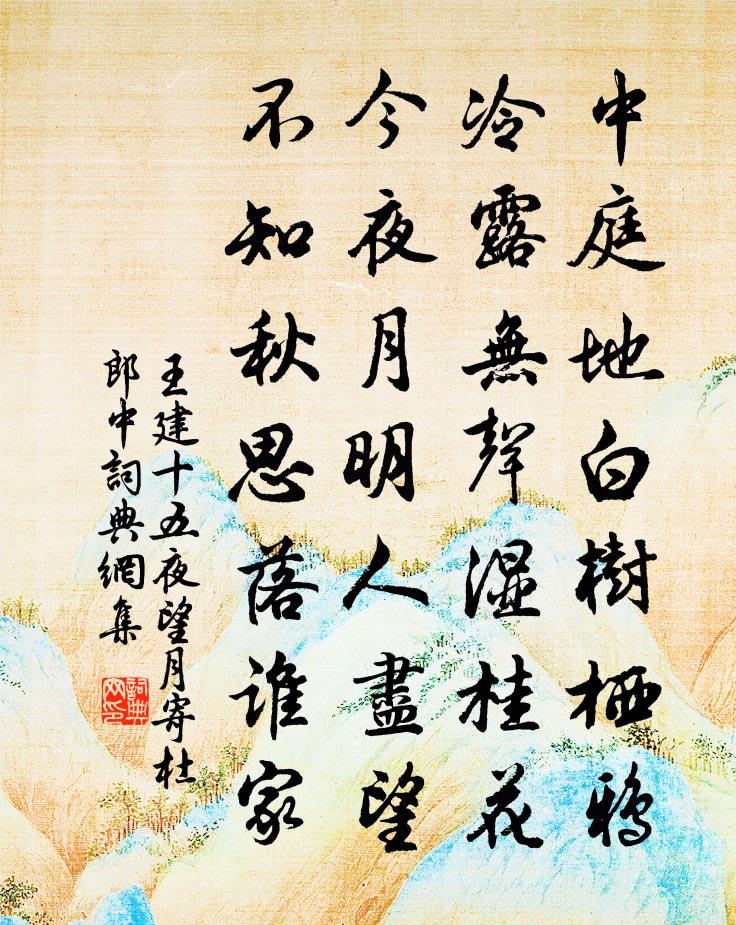 中庭地白樹栖鴉
冷露無聲濕桂花
今夜月明人盡望
不知秋思落誰家
王建十五夜望月寄杜
郎中詞典網集
詞典
网印